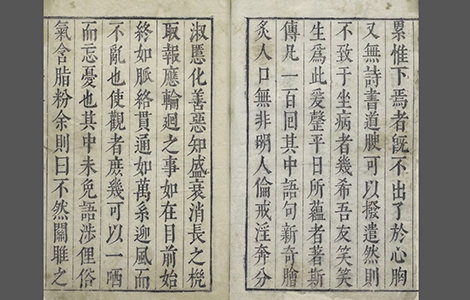 累惟下焉者既不出了於心胸
又無詩書道腴可以撥遣然則
不致于坐病者幾希吾友笑笑
生爲此爰罄平日所蘊者著斯
傳凡一百囘其中語句新奇膾
炙人口無非明人倫戒淫奔分
淑慝化善惡知盛衰消長之機
取報應輪廻之事如在目前始
終如脈絡貫通如萬系迎風而
不亂也使觀者庶幾可以一哂
而忘憂也其中未免語涉俚俗
氣含脂粉余則曰不然關雎之